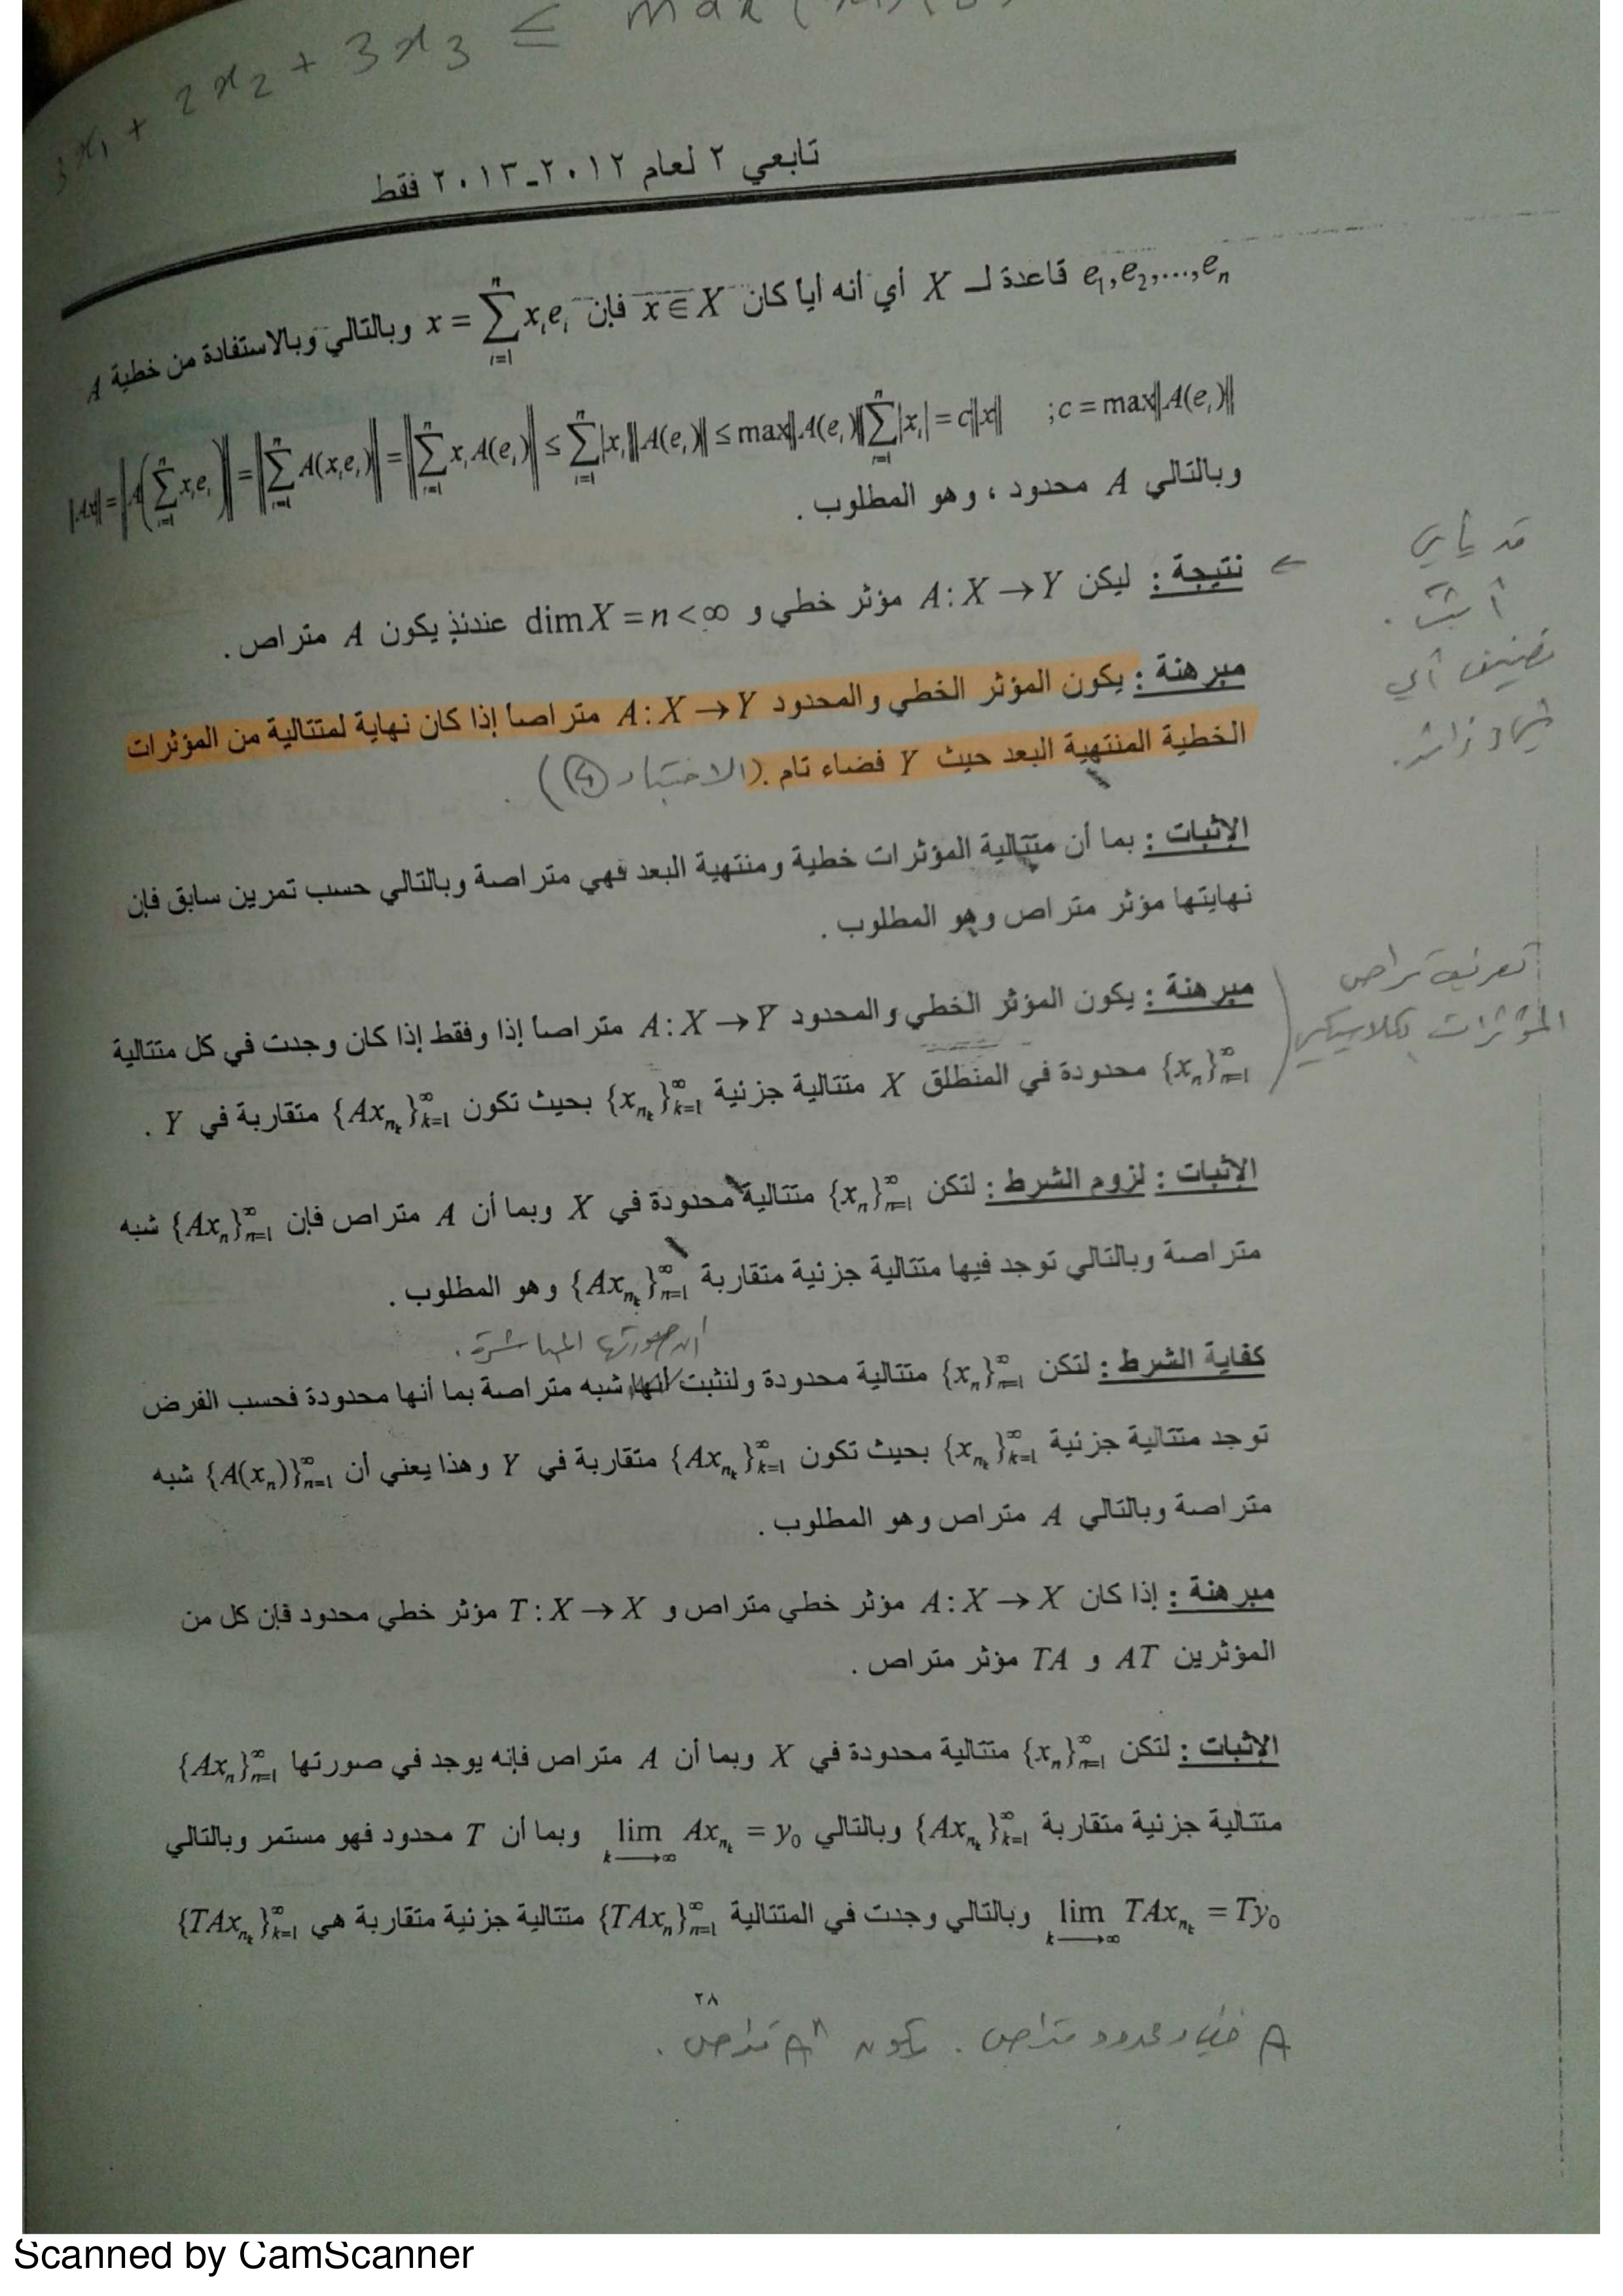 3x₁ + 2x₂ + 3x₃ ≤ max (
تابعي ٢ لعام ٢٠١٢-٢٠١٣ فقط
e₁,e₂,...,eₙ قاعدة لـ X أي أنه أيا كان x∈X فإن x = ∑ᵢ₌₁ⁿ xᵢeᵢ وبالتالي وبالاستفادة من خطية A
‖Ax‖ = ‖A(∑ᵢ₌₁ⁿ xᵢeᵢ)‖ = ‖∑ᵢ₌₁ⁿ A(xᵢeᵢ)‖ = ‖∑ᵢ₌₁ⁿ xᵢA(eᵢ)‖ ≤ ∑ᵢ₌₁ⁿ |xᵢ|‖A(eᵢ)‖ ≤ max‖A(eᵢ)‖∑ᵢ₌₁ⁿ|xᵢ| = c‖x‖ ;c = max‖A(eᵢ)‖
وبالتالي A محدود ، وهو المطلوب .
قد يأتي
أثبت .
نتيجة : ليكن A:X→Y مؤثر خطي و dim X = n<∞ عندئذ يكون A متراص .
مبرهنة : يكون المؤثر الخطي والمحدود A:X→Y متراصاً إذا كان نهاية لمتتالية من المؤثرات
الخطية المنتهية البعد حيث Y فضاء تام . (الاختبار ④)
الإثبات : بما أن متتالية المؤثرات خطية ومنتهية البعد فهي متراصة وبالتالي حسب تمرين سابق فإن
نهايتها مؤثر متراص وهو المطلوب .
تعريف تراص
المؤثرات بكلاسيكي
مبرهنة : يكون المؤثر الخطي والمحدود A:X→Y متراصاً إذا وفقط إذا كان وجدت في كل متتالية
{xₙ}ₙ₌₁^∞ محدودة في المنطلق X متتالية جزئية {x_{n_k}}ₖ₌₁^∞ بحيث تكون {Ax_{n_k}}ₖ₌₁^∞ متقاربة في Y .
الإثبات : لزوم الشرط : لتكن {xₙ}ₙ₌₁^∞ متتالية محدودة في X وبما أن A متراص فإن {Axₙ}ₙ₌₁^∞ شبه
متراصة وبالتالي توجد فيها متتالية جزئية متقاربة {Ax_{n_k}}ₙ₌₁^∞ وهو المطلوب .
أن صورتها المباشرة .
كفاية الشرط : لتكن {xₙ}ₙ₌₁^∞ متتالية محدودة ولنثبت أنها شبه متراصة بما أنها محدودة فحسب الفرض
توجد متتالية جزئية {x_{n_k}}ₖ₌₁^∞ بحيث تكون {Ax_{n_k}}ₖ₌₁^∞ متقاربة في Y وهذا يعني أن {A(xₙ)}ₙ₌₁^∞ شبه
متراصة وبالتالي A متراص وهو المطلوب .
مبرهنة : إذا كان A:X→X مؤثر خطي متراص و T:X→X مؤثر خطي محدود فإن كل من
المؤثرين AT و TA مؤثر متراص .
الإثبات : لتكن {xₙ}ₙ₌₁^∞ متتالية محدودة في X وبما أن A متراص فإنه يوجد في صورتها {Axₙ}ₙ₌₁^∞
متتالية جزئية متقاربة {Ax_{n_k}}ₖ₌₁^∞ وبالتالي lim_{k→∞} Ax_{n_k} = y₀ وبما أن T محدود فهو مستمر وبالتالي
lim_{k→∞} TAx_{n_k} = Ty₀ وبالتالي وجدت في المتتالية {TAxₙ}ₙ₌₁^∞ متتالية جزئية متقاربة هي {TAx_{n_k}}ₖ₌₁^∞
٢٨
A خطي ومحدود متراص . يكون Aⁿ متراص .
Scanned by CamScanner